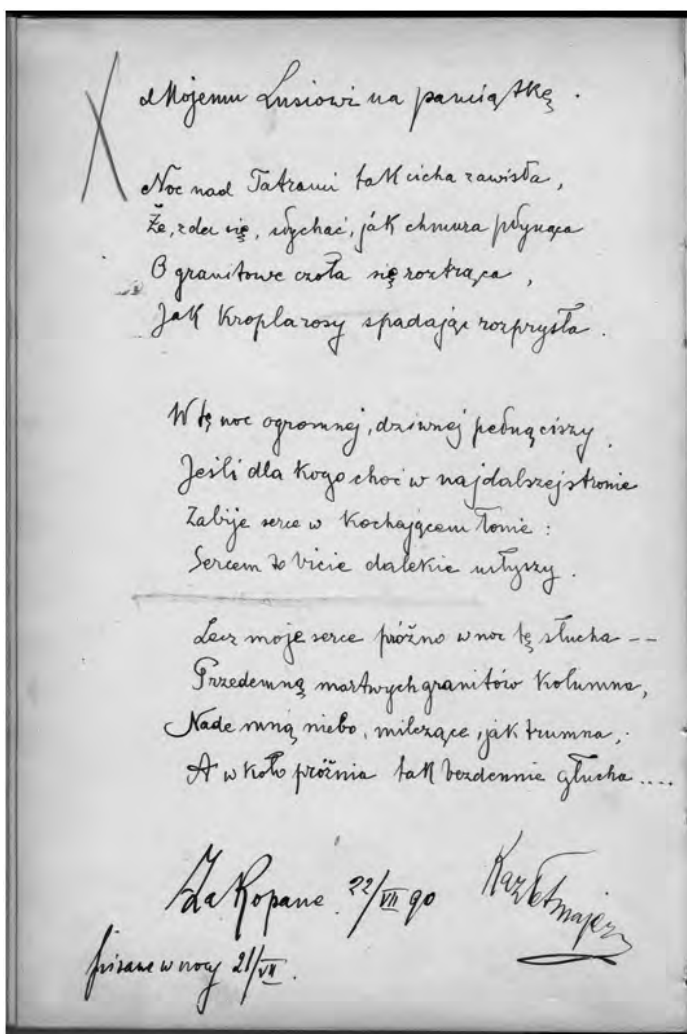 Mojemu Lusiowi na pamiątkę.
Noc nad Tatrami tak cicha zawisła,
Że, zda się, słychać, jak chmura płynąca
O granitowe czoła się roztrąca,
Jak kropla rosy spadając rozprysła.
W tę noc ogromnej, dziwnej pełną ciszy
Jeśli dla kogo choć w najdalszej stronie
Zabije serce w kochającem łonie:
Sercem to bicie dalekie usłyszy.
Lecz moje serce próżno w noc tę słucha --
Przedemną martwych granitów kolumna,
Nade mną niebo, milczące, jak trumna,
A w koło próżnia tak bezdennie głucha....
Zakopane 22/VII 90 KazTetmajer
pisane w nocy 21/VII.